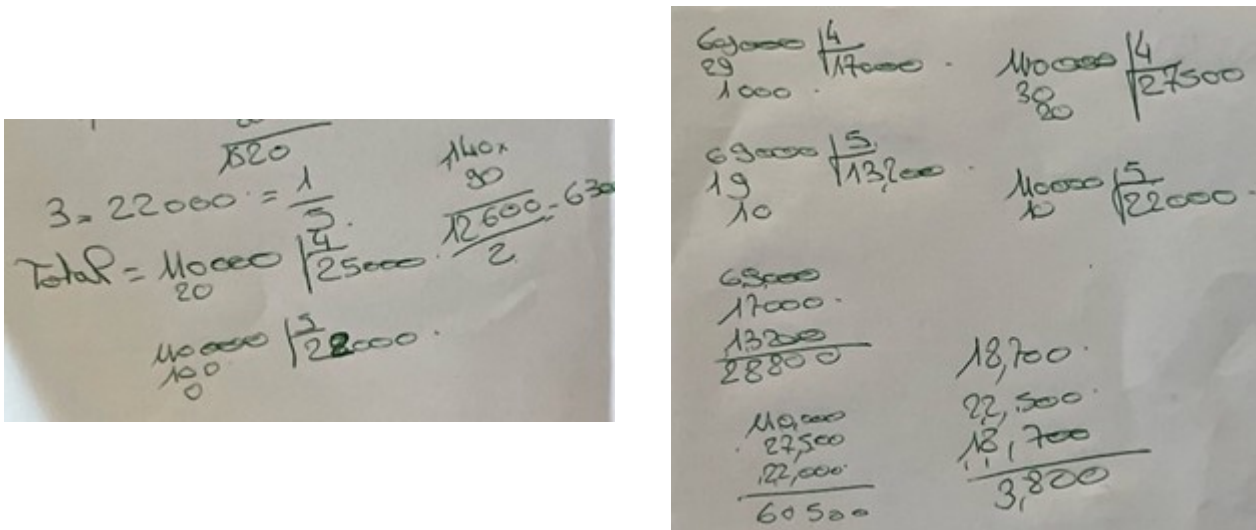 1520
140x
90
3 = 22000 = 1/5
12600 = 630
2
Total = 110000 | 4
20 25000
110000 | 5
100 22000
0
69000 | 4
29 17000
1000
110000 | 4
30 27500
20
69000 | 5
19 13,200
10
110000 | 5
10 22000
69,000
17000
13200
28800
110,000
27,500
22,000
60500
18,700
22,500
18,700
3,800